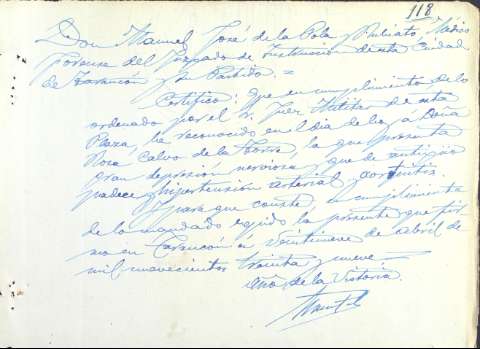 118
Don Manuel José de la Pola y Miliato, Médico
forense del Juzgado de Instrucción de esta Ciudad
de Tarancón y su Partido =
Certifico: que en cumplimiento de lo
ordenado por el Sr. Juez Militar de esta
Plaza, ha reconocido en el día de hoy a Doña
Rosa Calvo de la Torre, la que presenta
gran depresión nerviosa y que de antiguo
padece hipertensión arterial y aortitis.
Y para que conste, en cumplimiento
de lo mandado expido la presente que fir
mo en Tarancón a veintinueve de abril de
mil novecientos treinta y nueve
Año de la Victoria.